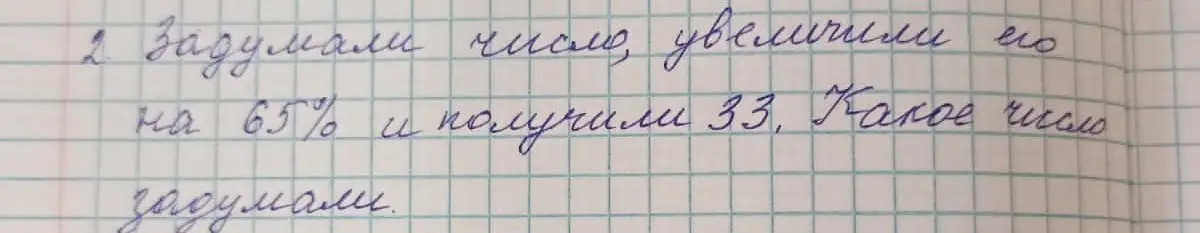 2. Задумали число, увеличили его
на 65% и получили 33. Какое число
задумали.